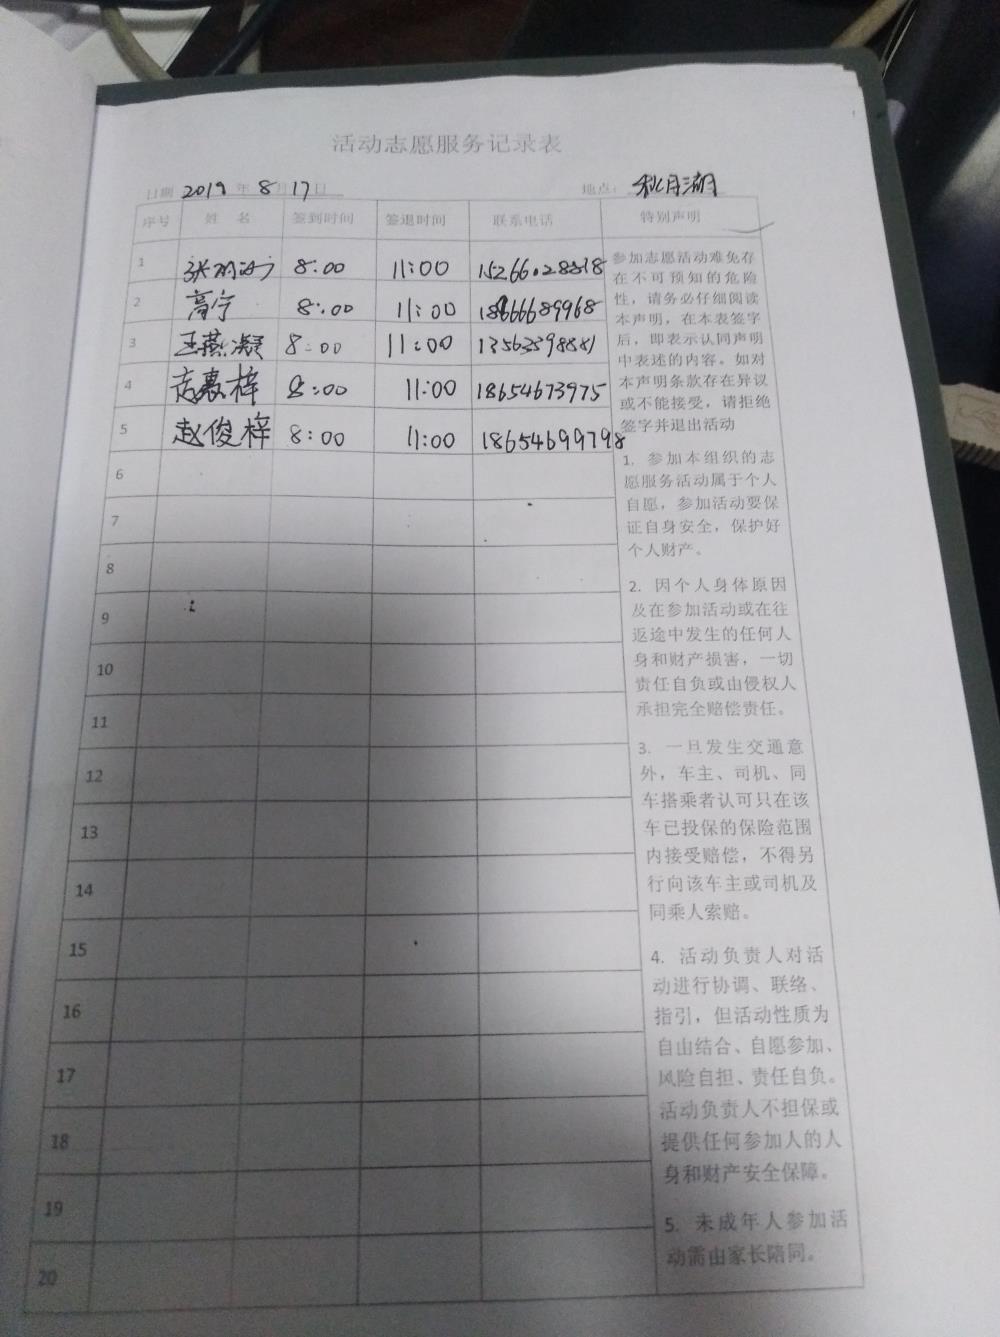 活动志愿服务记录表
日期 2019 年 8 月 17 日 地点: 秋月湖
序号 姓 名 签到时间 签退时间 联系电话 特别声明
1 8:00 11:00
2 高宇 8:00 11:00 18666689968
3 王燕凝 8:00 11:00
4 8:00 11:00 18654673975
5 赵俊梓 8:00 11:00 18654699798
6
7
8
9
10
11
12
13
14
15
16
17
18
19
20
参加志愿活动难免存
在不可预知的危险
性，请务必仔细阅读
本声明，在本表签字
后，即表示认同声明
中表述的内容。如对
本声明条款存在异议
或不能接受，请拒绝
签字并退出活动
1. 参加本组织的志
愿服务活动属于个人
自愿，参加活动要保
证自身安全，保护好
个人财产。
2. 因个人身体原因
及在参加活动或在往
返途中发生的任何人
身和财产损害，一切
责任自负或由侵权人
承担完全赔偿责任。
3. 一旦发生交通意
外，车主、司机、同
车搭乘者认可只在该
车已投保的保险范围
内接受赔偿，不得另
行向该车主或司机及
同乘人索赔。
4. 活动负责人对活
动进行协调、联络、
指引，但活动性质为
自由结合、自愿参加、
风险自担、责任自负。
活动负责人不担保或
提供任何参加人的人
身和财产安全保障。
5. 未成年人参加活
动需由家长陪同。